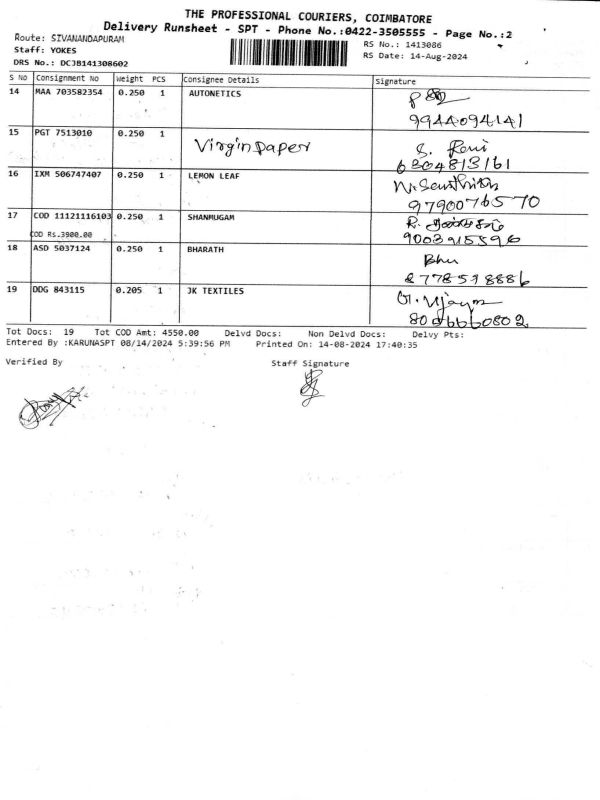 THE PROFESSIONAL COURIERS, COIMBATORE
Delivery Runsheet - SPT - Phone No.:0422-3505555 - Page No.:2
Route: SIVANANDAPURAM
RS No.: 1413086
Staff: YOKES
RS Date: 14-Aug-2024
DRS No.: DCJB141308602
S No Consignment No Weight PCS Consignee Details Signature
14 MAA 703582354 0.250 1 AUTONETICS
9944094141
15 PGT 7513010 0.250 1 Virgin paper S. Rani
6304813161
16 IXM 506747407 0.250 1 LEMON LEAF
9790076570
17 COD 11121116103 0.250 1 SHANMUGAM
COD Rs.3900.00 9003915596
18 ASD 5037124 0.250 1 BHARATH
8778598886
19 DDG 843115 0.205 1 JK TEXTILES
Tot Docs: 19 Tot COD Amt: 4550.00 Delvd Docs: Non Delvd Docs: Delvy Pts:
Entered By :KARUNASPT 08/14/2024 5:39:56 PM Printed On: 14-08-2024 17:40:35
Verified By Staff Signature